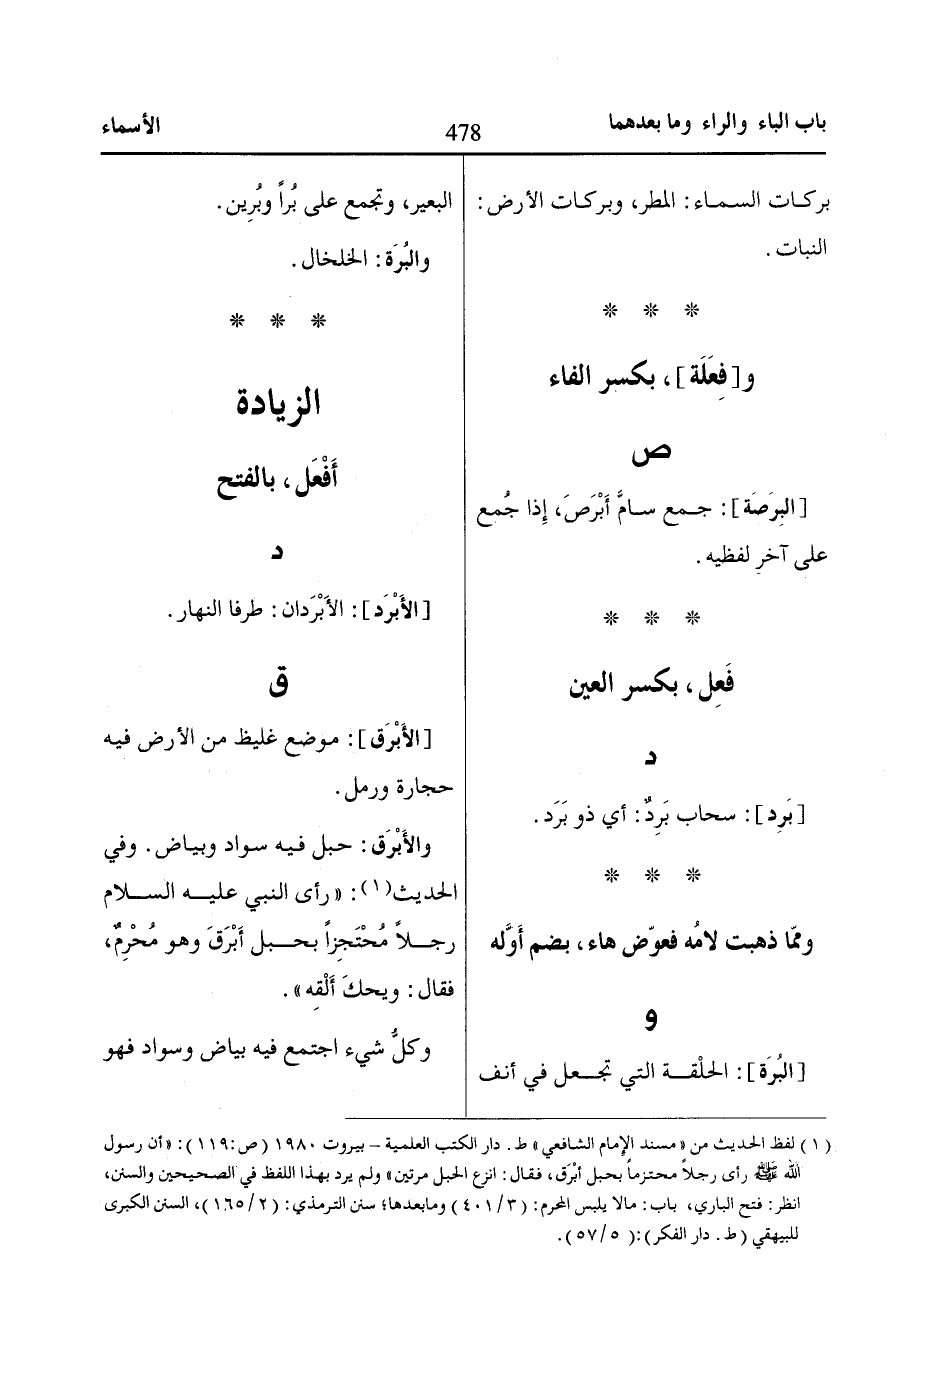 باب الباء والراء وما بعدهما
478
الأسماء
بركات السماء: المطر، وبركات الأرض:
النبات.
* * *
و[فِعَلَة]، بكسر الفاء
ص
[البِرَصَة]: جمع سامَّ أَبْرَصَ، إِذا جُمع
على آخر لفظيه.
* * *
فَعِل، بكسر العين
د
[بَرِد]: سحاب بَرِدٌ: أي ذو بَرَد.
* * *
ومما ذهبت لامُه فعوّض هاء، بضم أوَّله
و
[البُرَة]: الحلْقة التي تجعل في أنف
البعير، وتجمع على بُراً وبُرِين.
والبُرَة: الخلخال.
* * *
الزيادة
أَفْعَل، بالفتح
د
[الأَبْرَد]: الأَبْرَدان: طرفا النهار.
ق
[الأَبْرَق]: موضع غليظ من الأرض فيه
حجارة ورمل.
والأَبْرَق: حبل فيه سواد وبياض. وفي
الحديث(١): «رأى النبي عليه السلام
رجلاً مُحْتَجِزاً بحبل أَبْرَقَ وهو مُحْرِمٌ،
فقال: ويحكَ أَلْقِه».
وكلُّ شيء اجتمع فيه بياض وسواد فهو
(١) لفظ الحديث من «مسند الإمام الشافعي» ط. دار الكتب العلمية – بيروت ١٩٨٠ (ص:١١٩): «أن رسول
الله ﷺ رأى رجلاً محتزماً بحبل أبْرَق، فقال: انزع الحبل مرتين» ولم يرد بهذا اللفظ في الصحيحين والسنن،
انظر: فتح الباري، باب: مالا يلبس المحرم: (٤٠١/٣) ومابعدها؛ سنن الترمذي: (١٦٥/٢)، السنن الكبرى
للبيهقي (ط. دار الفكر):(٥٧/٥).